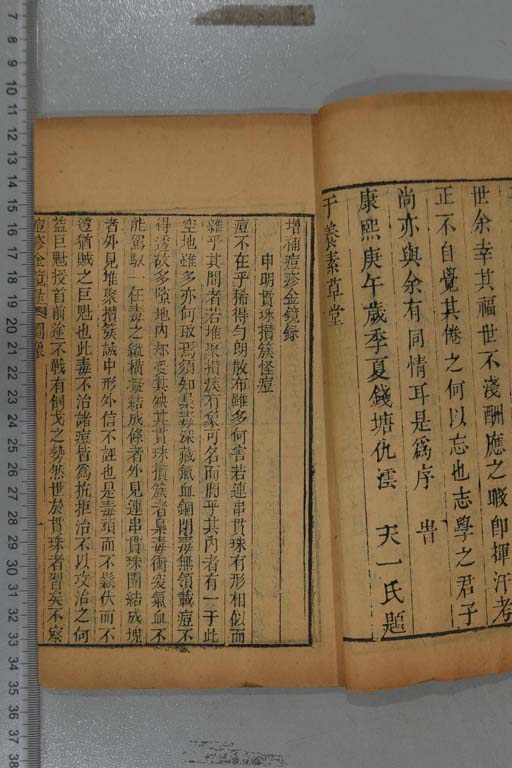 世余幸其福世不淺酬應之暇即揮汗考
正不自覺其倦之何以忘也志學之君子
尚亦與余有同情耳是爲序 旹
康熙庚午歲季夏錢塘仇澐 天一氏題
于養素草堂
增補痘疹金鏡錄
申明貫珠攢簇怪痘
痘不在乎稀得勻朗散布雖多何害若連串貫珠有形相似而
雜乎其間者若堆聚攢簇有象可名而間乎其內者有一于此
空地雖多亦何取焉須知梟毒深藏氣血錮閉毒無領載痘不
得透故多隙地內却受其殃其貫珠攢簇者梟毒衝突氣血不
能駕馭 任毒之縱橫凝結成條者外見連串貫珠團結成塊
者外見堆聚攢簇誠中形外信不誣也是毒頑而不鬆伏而不
透猶賊之巨魁也此毒不治諸痘皆爲抗拒治不以攻治之何
益巨魁授首前途不戰有倒戈之勢然世於貫珠者習矣不察
痘疹金鏡錄